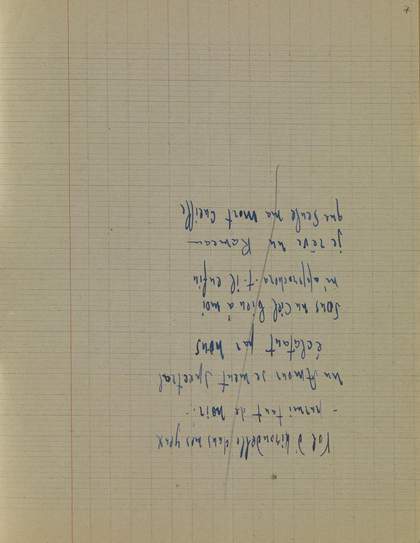 Vol d'hirondelle dans mes yeux
- parmi tant de noir -
un Amour se meut spectral
éclatant par nous
sous un Ciel à moi
m'approchera-t-il enfin
je rêve un Rameau
que seule ma mort cueille